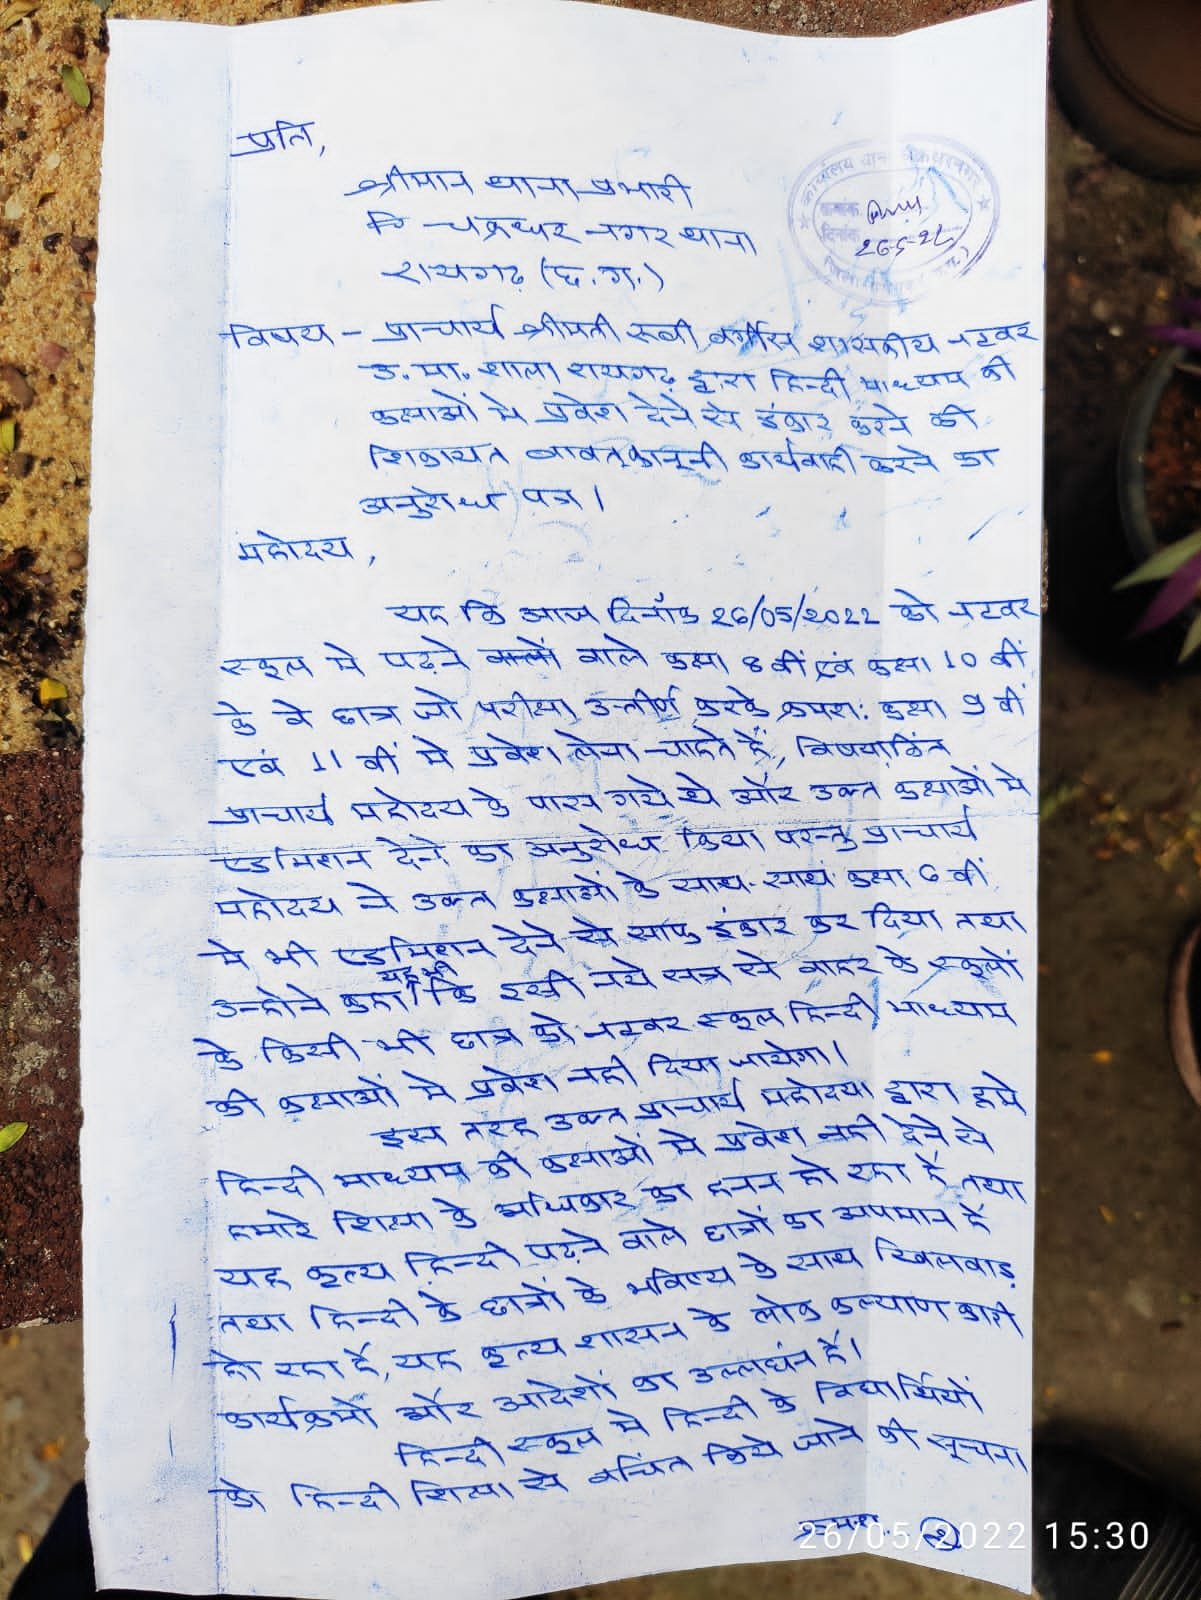 प्रति,
कार्यालय थाना चक्रधरनगर
क्रमांक
दिनांक
26-5-22
श्रीमान थाना प्रभारी
चक्रधर नगर थाना
रायगढ़ (छ.ग.)
विषय - प्राचार्य श्रीमती रूबी वर्गीस शासकीय नटवर
उ.मा. शाला रायगढ़ द्वारा हिन्दी माध्यम की
कक्षाओं मे प्रवेश देने से इंकार करने की
शिकायत बावत् कानूनी कार्यवाही करने का
अनुरोध पत्र।
महोदय,
यह कि आज दिनाँक 26/05/2022 को नटवर
स्कूल मे पढ़ने वाले कक्षा 8 वीं एवं कक्षा 10 वीं
के वे छात्र जो परीक्षा उत्तीर्ण करके क्रमश: कक्षा 9 वीं
एवं 11 वीं मे प्रवेश लेना चाहते हैं, विषयांकित
प्राचार्य महोदय के पास गये थे और उक्त कक्षाओं मे
एडमिशन देने का अनुरोध किया परन्तु प्राचार्य
महोदय ने उक्त कक्षाओं के साथ-साथ कक्षा 6 वीं
मे भी एडमिशन देने से साफ इंकार कर दिया तथा
उन्होने कहा यह भी कि इसी नये सत्र से बाहर के स्कूलों
के किसी भी छात्र को नटवर स्कूल हिन्दी माध्यम
की कक्षाओं मे प्रवेश नही दिया जायेगा।
इस तरह उक्त प्राचार्य महोदया द्वारा हमे
हिन्दी माध्यम की कक्षाओं मे प्रवेश नही देने से
हमारे शिक्षा के अधिकार का हनन हो रहा है तथा
यह कृत्य हिन्दी पढ़ने वाले छात्रों का अपमान है
तथा हिन्दी के छात्रों के भविष्य के साथ खिलवाड़
हो रहा है, यह कृत्य शासन के लोक कल्याण कारी
कार्यक्रमों और आदेशों का उल्लघंन है।
हिन्दी स्कूल मे हिन्दी के विद्यार्थियों
को हिन्दी शिक्षा से वंचित किये जाने की सूचना
क्रमश: 2
26/05/2022 15:30